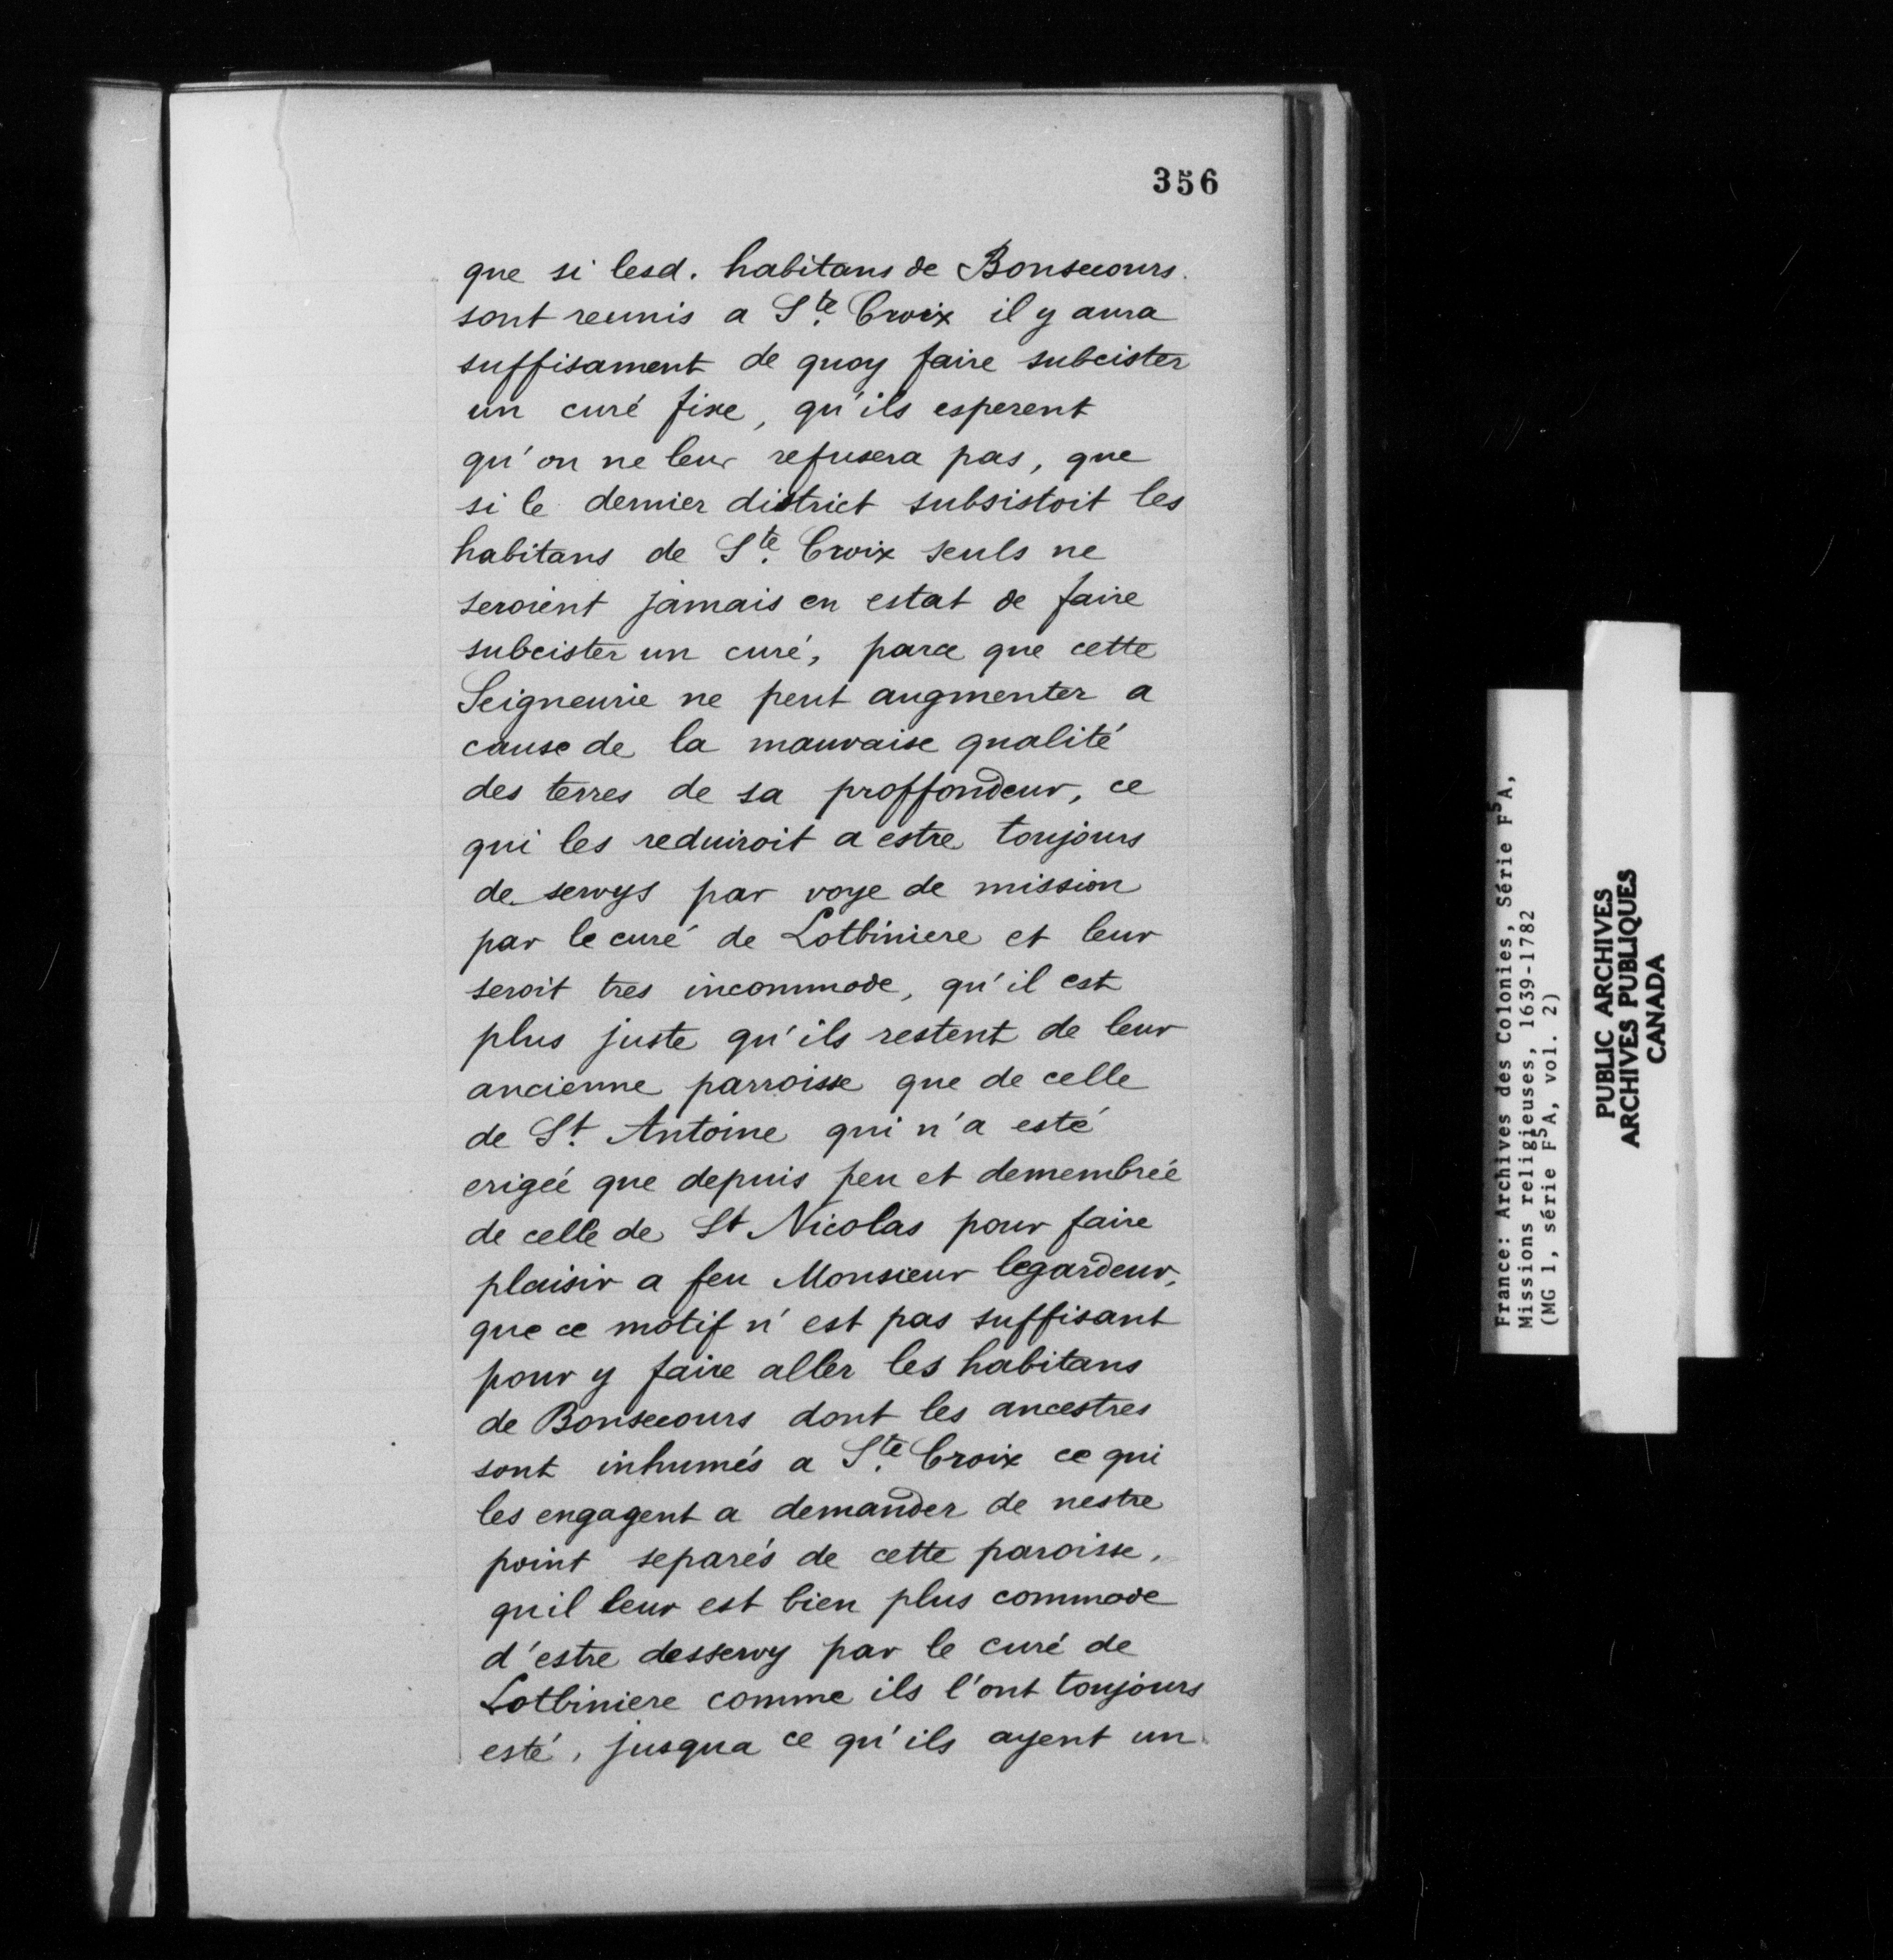 356
que si lesd. habitans de Bonsecours
sont reunis a Ste. Croix il y aura
suffisament de quoy faire subcister
un curé fixe, qu'ils esperent
qu'on ne leur refusera pas, que
si le dernier district subsistoit les
habitans de Ste. Croix seuls ne
seroient jamais en estat de faire
subcister un curé, parce que cette
Seigneurie ne peut augmenter a
cause de la mauvaise qualité
des terres de sa proffondeur, ce
qui les reduiroit a estre toujours
de servys par voye de mission
par le curé de Lotbiniere et leur
seroit tres incommode, qu'il est
plus juste qu'ils restent de leur
ancienne parroisse que de celle
de St. Antoine qui n'a esté
erigéé que depuis peu et demembréé
de celle de St Nicolas pour faire
plaisir a feu Monsieur legardeur,
que ce motif n'est pas suffisant
pour y faire aller les habitans
de Bonsecours dont les ancestres
sont inhumés a Ste. Croix ce qui
les engagent a demander de nestre
point separés de cette paroisse,
quil leur est bien plus commode
d'estre desservy par le curé de
Lotbiniere comme ils l'ont toujours
esté, jusqua ce qu'ils ayent un
France: Archives des Colonies, Série F5A,
Missions religieuses, 1639-1782
(MG 1, série F5A, vol. 2)
PUBLIC ARCHIVES
ARCHIVES PUBLIQUES
CANADA